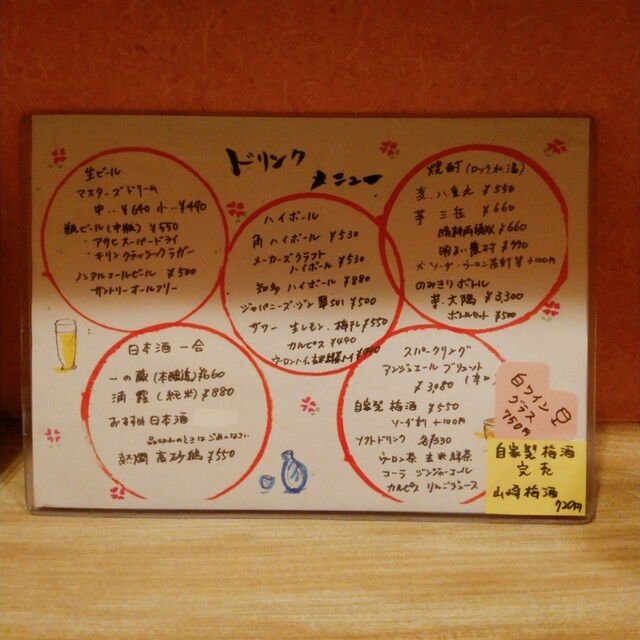 ドリンク
メニュー
生ビール
マスターズドリーム
中‥¥640 小‥¥490
瓶ビール(中瓶) ¥550
・アサヒスーパードライ
・キリンクラシックラガー
ノンアルコールビール ¥500
サントリーオールフリー
ハイボール
角ハイボール ¥530
メーカーズクラフト
ハイボール ¥530
知多ハイボール ¥880
ジャパニーズ・ジン 翠ソーダ ¥500
サワー 生レモン、梅干し ¥550
カルピス ¥490
ウーロンハイ、
焼酎(ロック、水、湯)
麦、八重丸 ¥550
芋 三岳 ¥660
¥660
明るい農村 ¥770
※ソーダ・ウーロン茶割 +100円
のみきりボトル
芋、大隅 ¥3,300
ボトルセット ¥500
日本酒 一合
一の蔵(本醸造) ¥660
浦霞(純米) ¥880
おすすめ日本酒
品切れのときはごめんなさい
熱燗 高砂鶴 ¥550
スパークリング
アンジュエール ブリュット
¥3,080 (辛口)
自家製梅酒 ¥550
ソーダ割 +100円
ソフトドリンク 各/330
ウーロン茶 玄米緑茶
コーラ ジンジャーエール
カルピス りんごジュース
白ワイン
グラス
750円
自家製梅酒
完売
山崎梅酒
720円